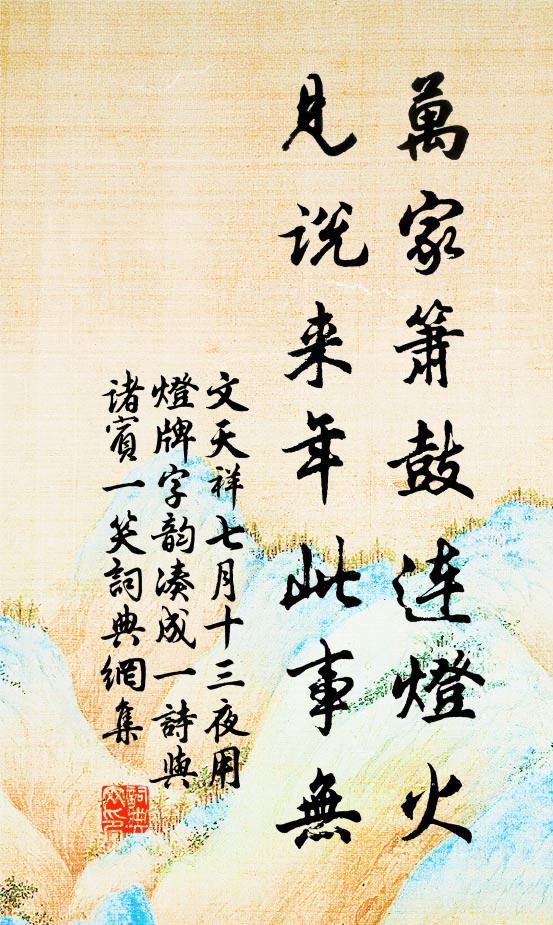 萬家簫鼓连燈火
見说来年此事無
文天祥七月十三夜用
燈牌字韵湊成一詩與
诸賓一笑詞典網集